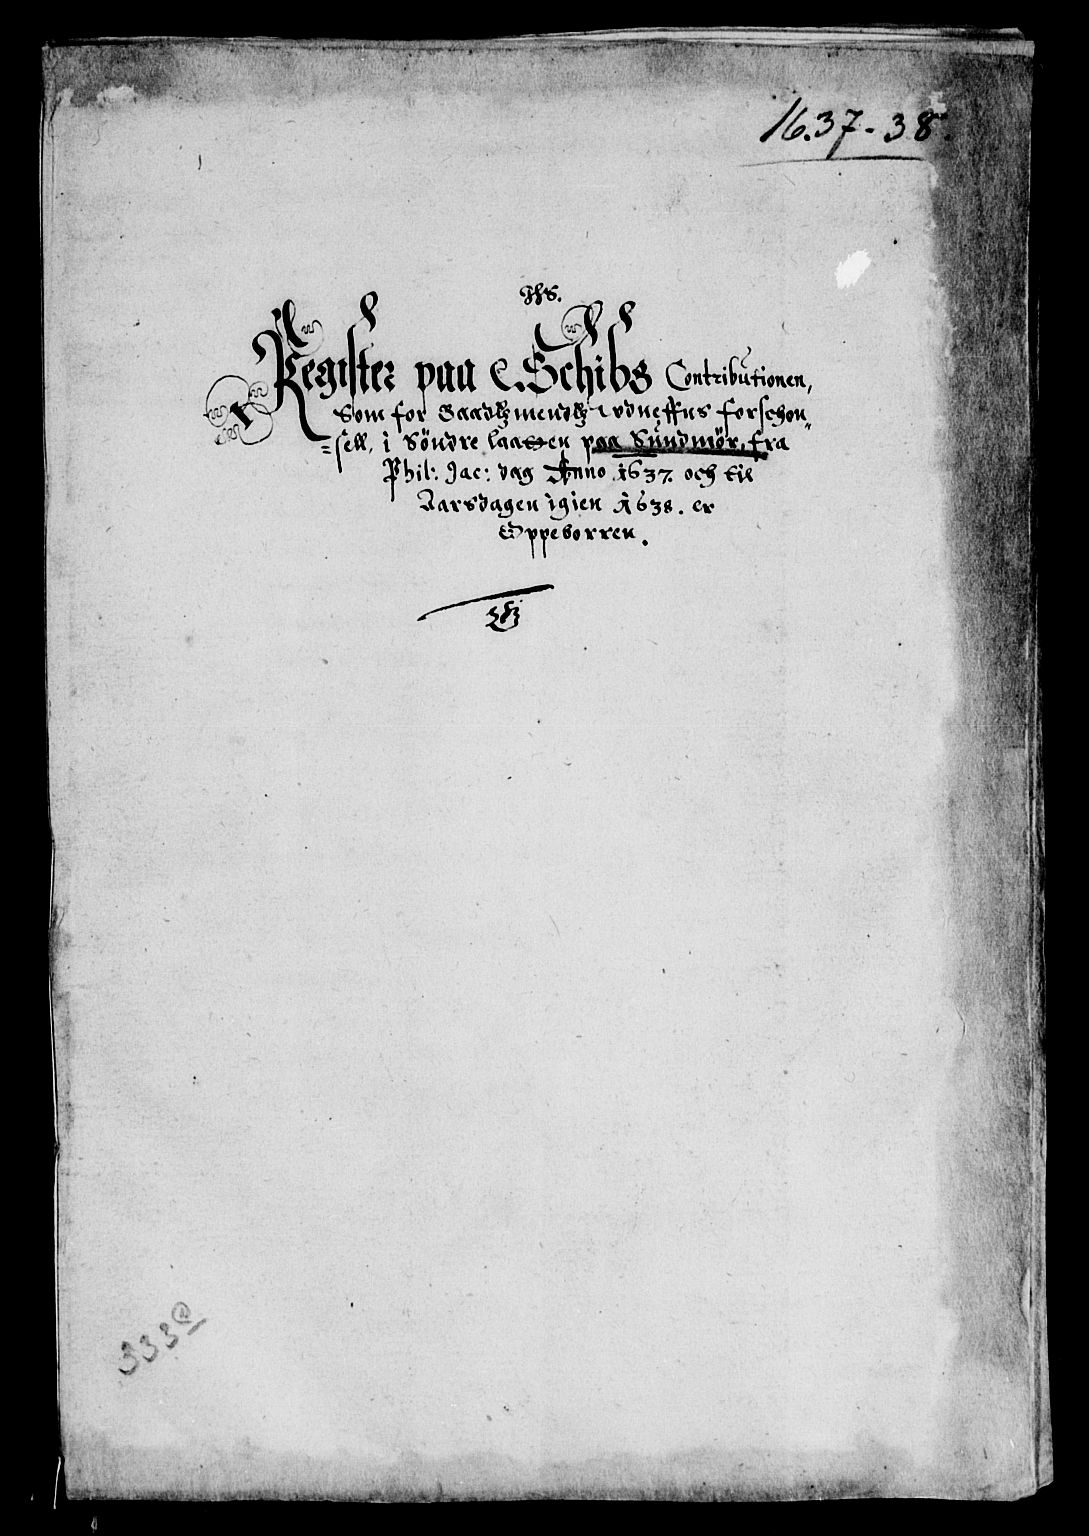 1637-38.
Jhs.
Register paa E. Schibs Contributionen,
Som for Baadtzmendtz udneffns forschon„
=sell, i Söndre laaen paa Sündmör, fra
Phil: Jac: dag Anno 1637. och til
Aarsdagen igien 1638. er
Oppeborren.
333a